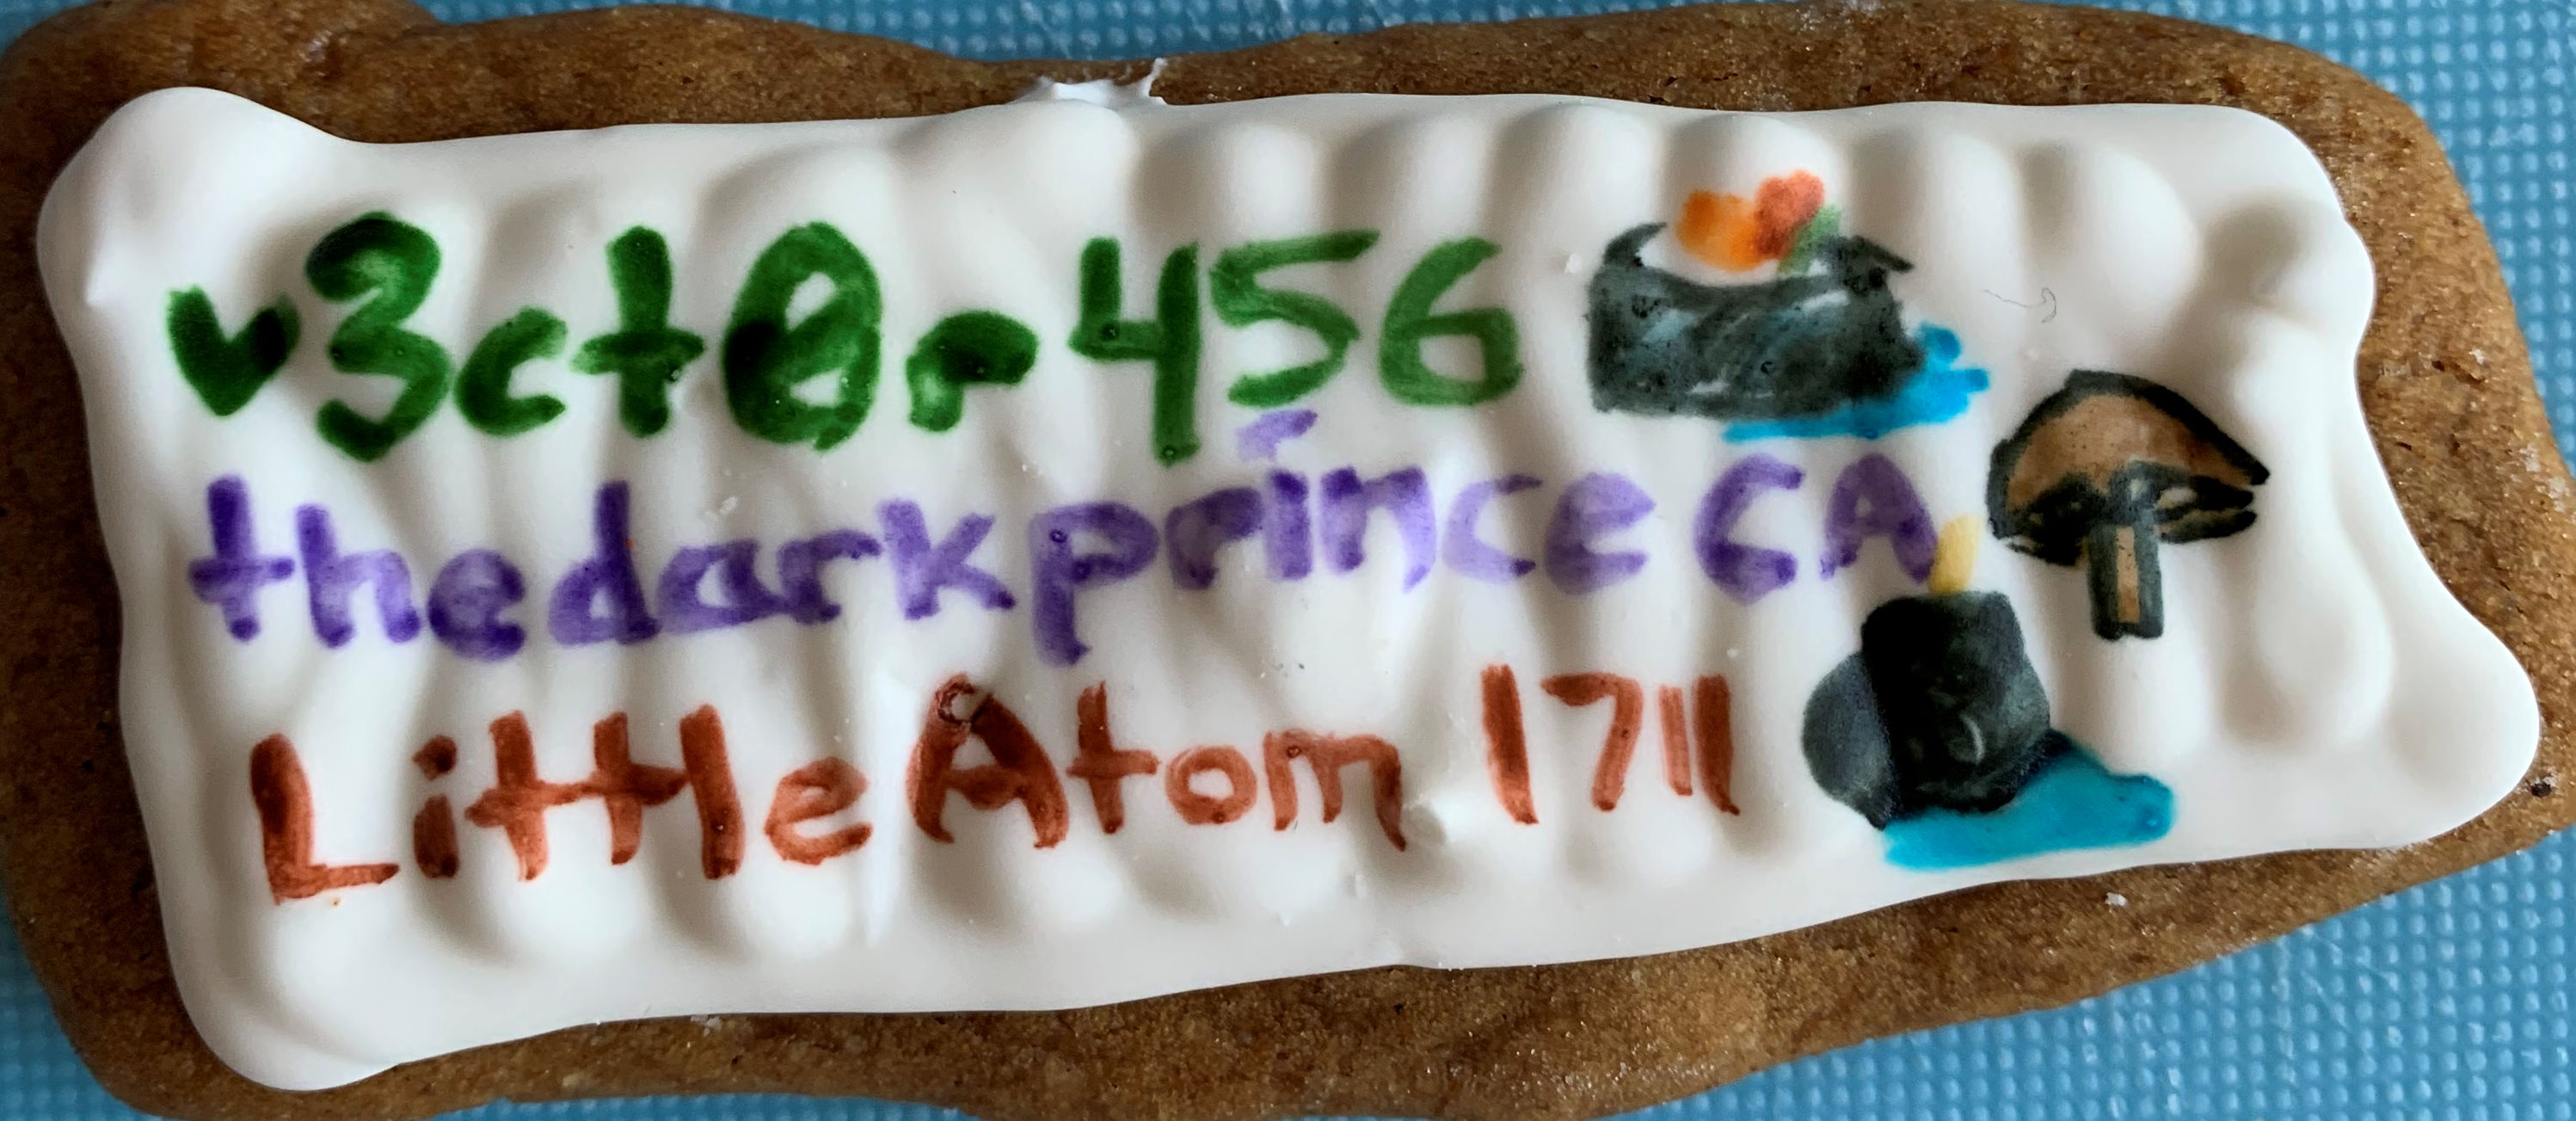 v3ct0r456
thedarkprinceCA
LittleAtom1711